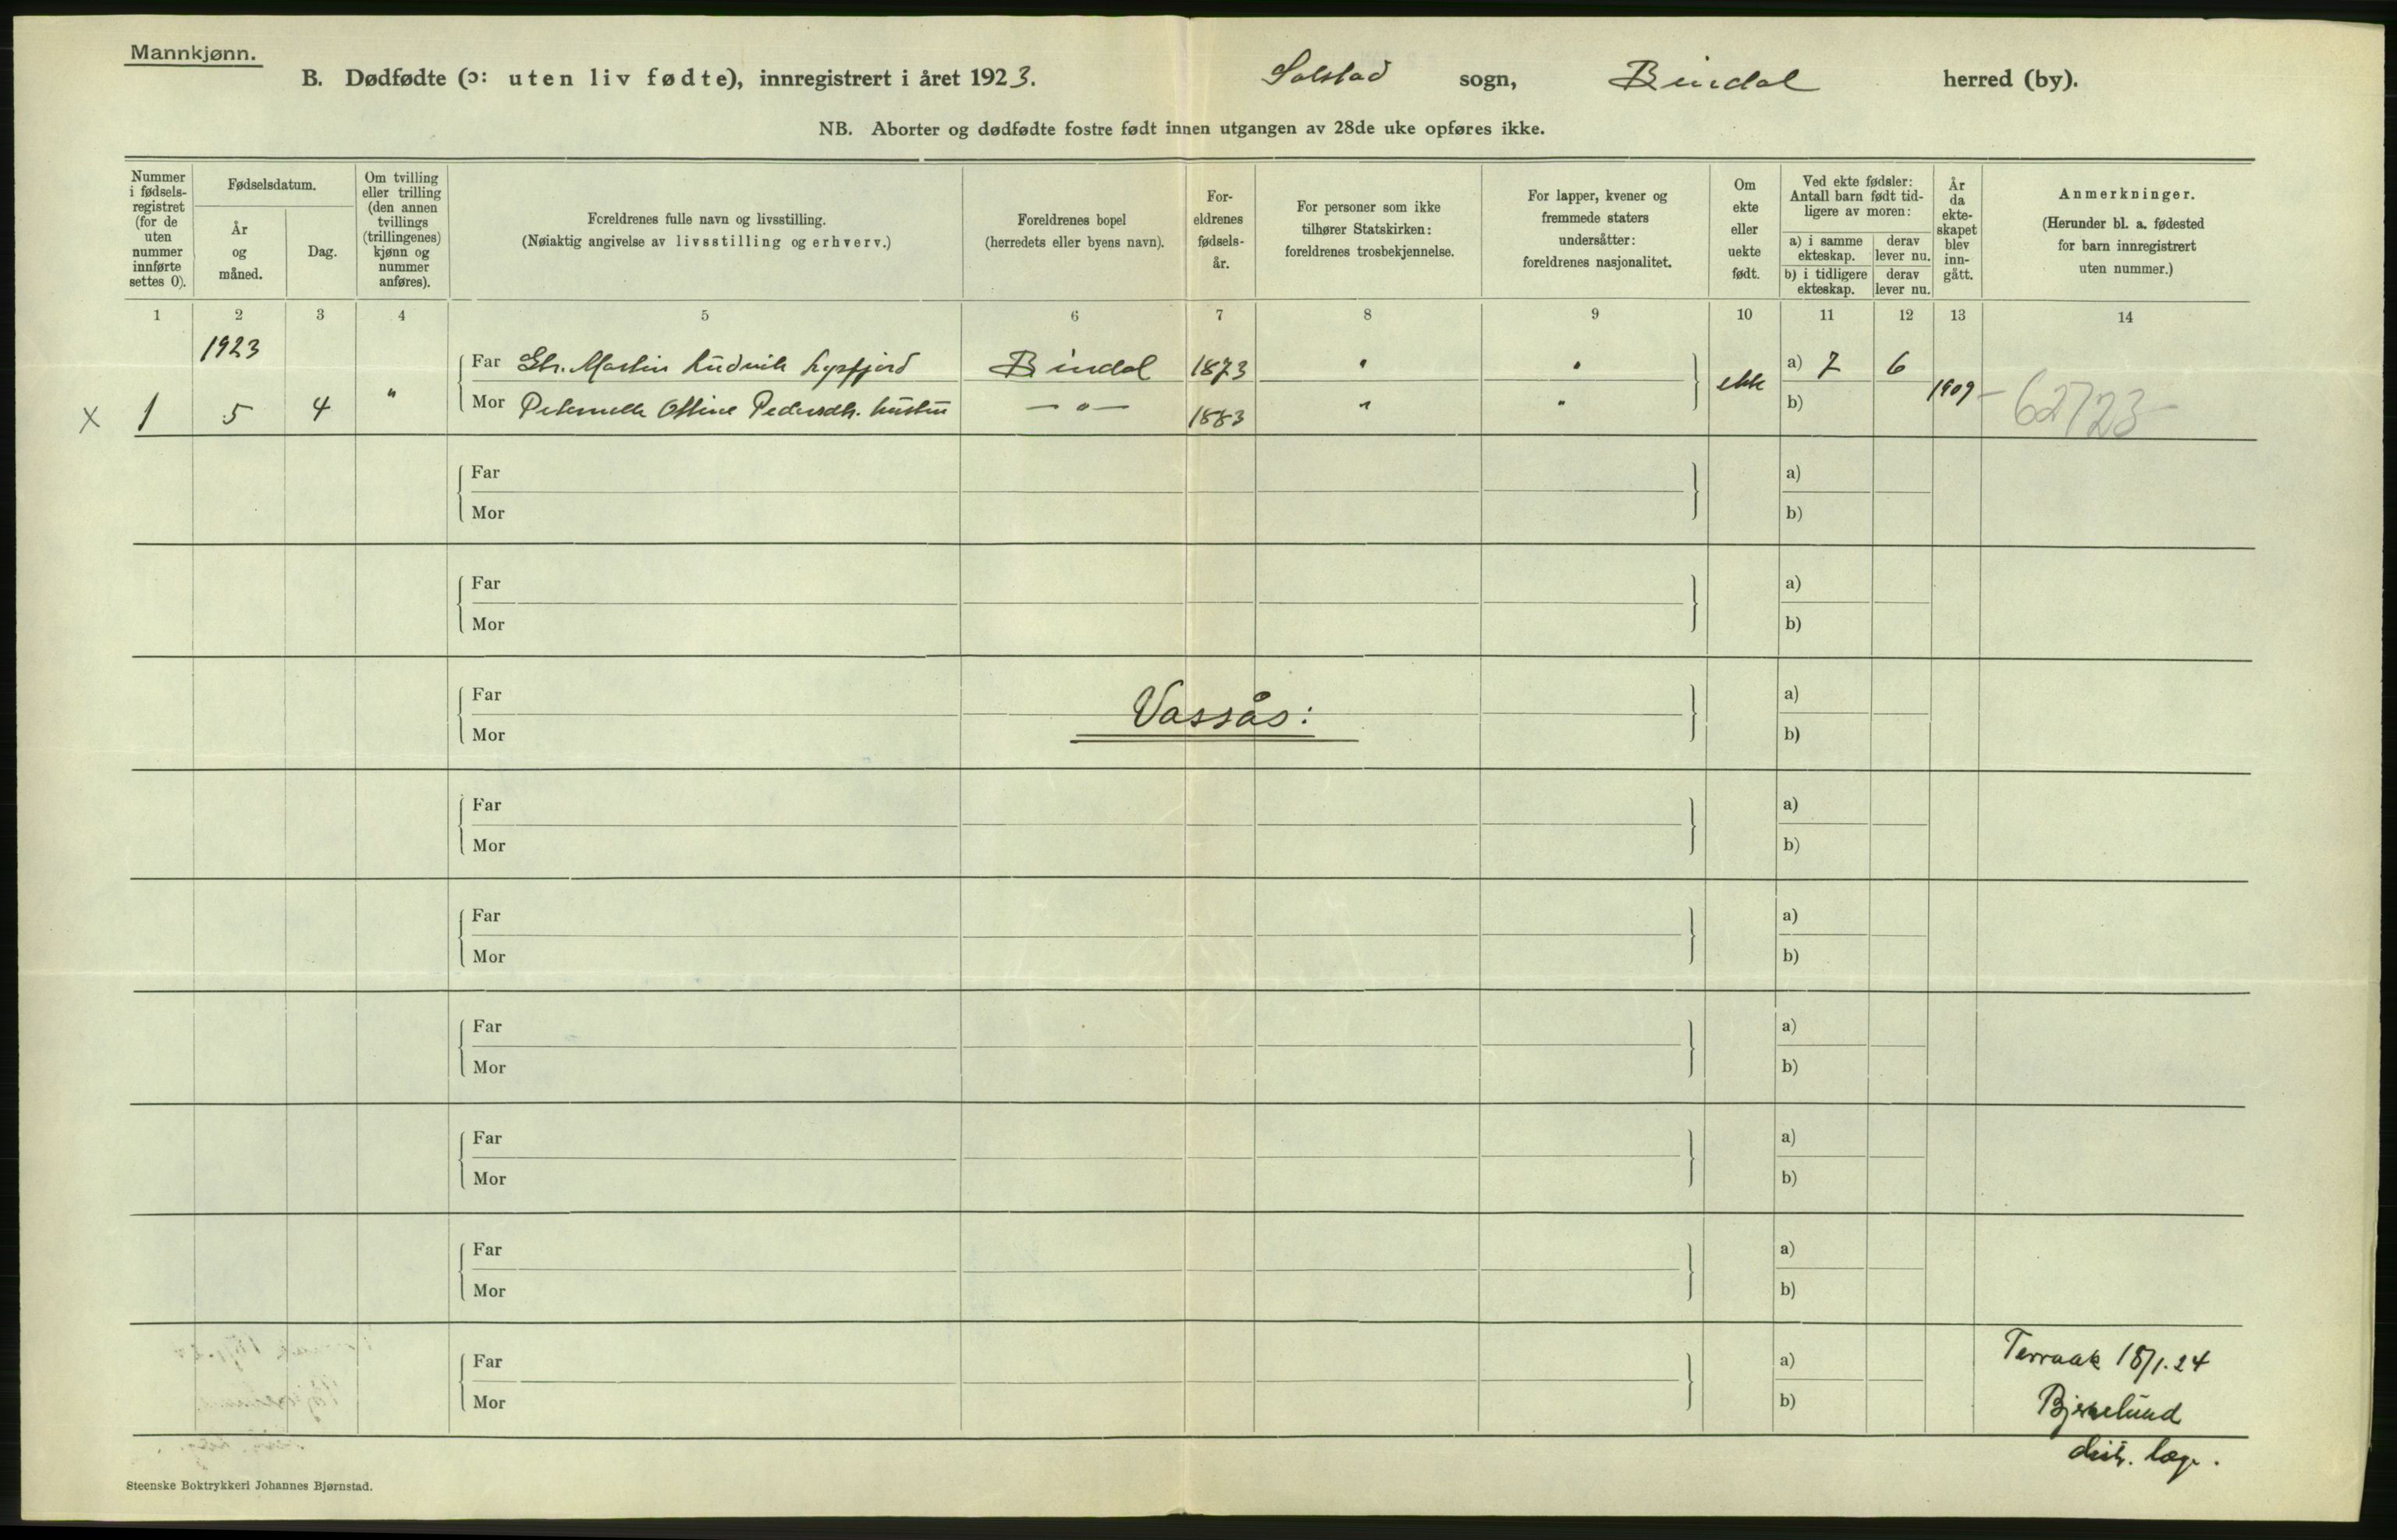 Mannkjønn.
B. Dødfødte (ɔ: uten liv fødte), innregistrert i året 1923. Solstad sogn, Bindal herred (by).
NB. Aborter og dødfødte fostre født innen utgangen av 28de uke opføres ikke.
Nummer i fødsels-registret (for de uten nummer innførte settes 0).
Fødselsdatum.
År og måned.
Dag.
Om tvilling eller trilling (den annen tvillings (trillingenes) kjønn og nummer anføres).
Foreldrenes fulle navn og livsstilling.
(Nøiaktig angivelse av livsstilling og erhverv.)
Foreldrenes bopel
(herredets eller byens navn).
For-eldrenes fødsels-år.
For personer som ikke tilhører Statskirken: foreldrenes trosbekjennelse.
For lapper, kvener og fremmede staters undersåtter: foreldrenes nasjonalitet.
Om ekte eller uekte født.
Ved ekte fødsler: Antall barn født tid-ligere av moren:
a) i samme ekteskap. derav lever nu.
b) i tidligere ekteskap. derav lever nu.
År da ekte-skapet blev inn-gått.
Anmerkninger.
(Herunder bl. a. fødested for barn innregistrert uten nummer.)
1 2 3 4 5 6 7 8 9 10 11 12 13 14
1923
Far Gbr. Martin Ludvik Lysfjord Bindal 1873 " " ekte a) 7 6 1909 - 62723 -
x 1 5 4 " Mor Peternelle Ottine Pedersdtr. hustru — " — 1883 " " b)
Far a)
Mor b)
Far a)
Mor b)
Far a)
Vassås:
Mor b)
Far a)
Mor b)
Far a)
Mor b)
Far a)
Mor b)
Far a)
Mor b)
Far a)
Mor b)
Far a) Terraak 18/1.24
Mor b) Bjerkelund
distr. læge.
Steenske Boktrykkeri Johannes Bjørnstad.